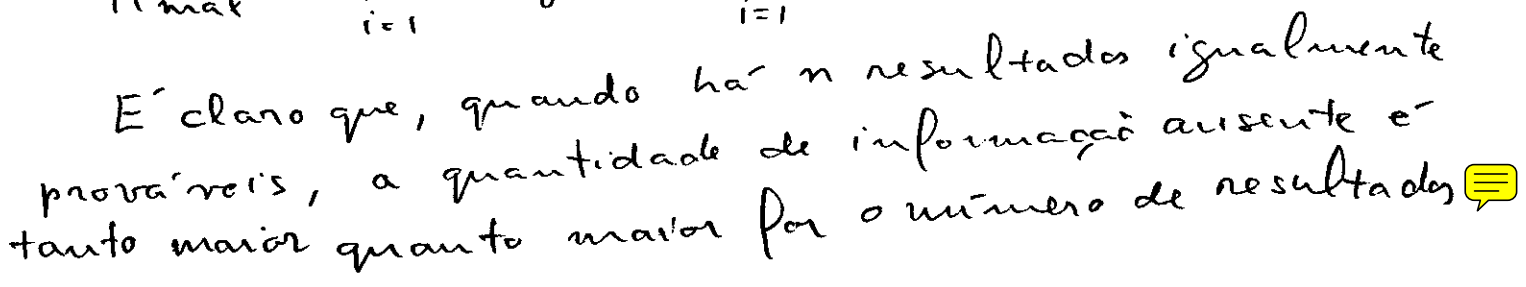 max i=1 i=1
É claro que, quando há n resultados igualmente
prováveis, a quantidade de informação ausente é
tanto maior quanto maior for o número de resultados